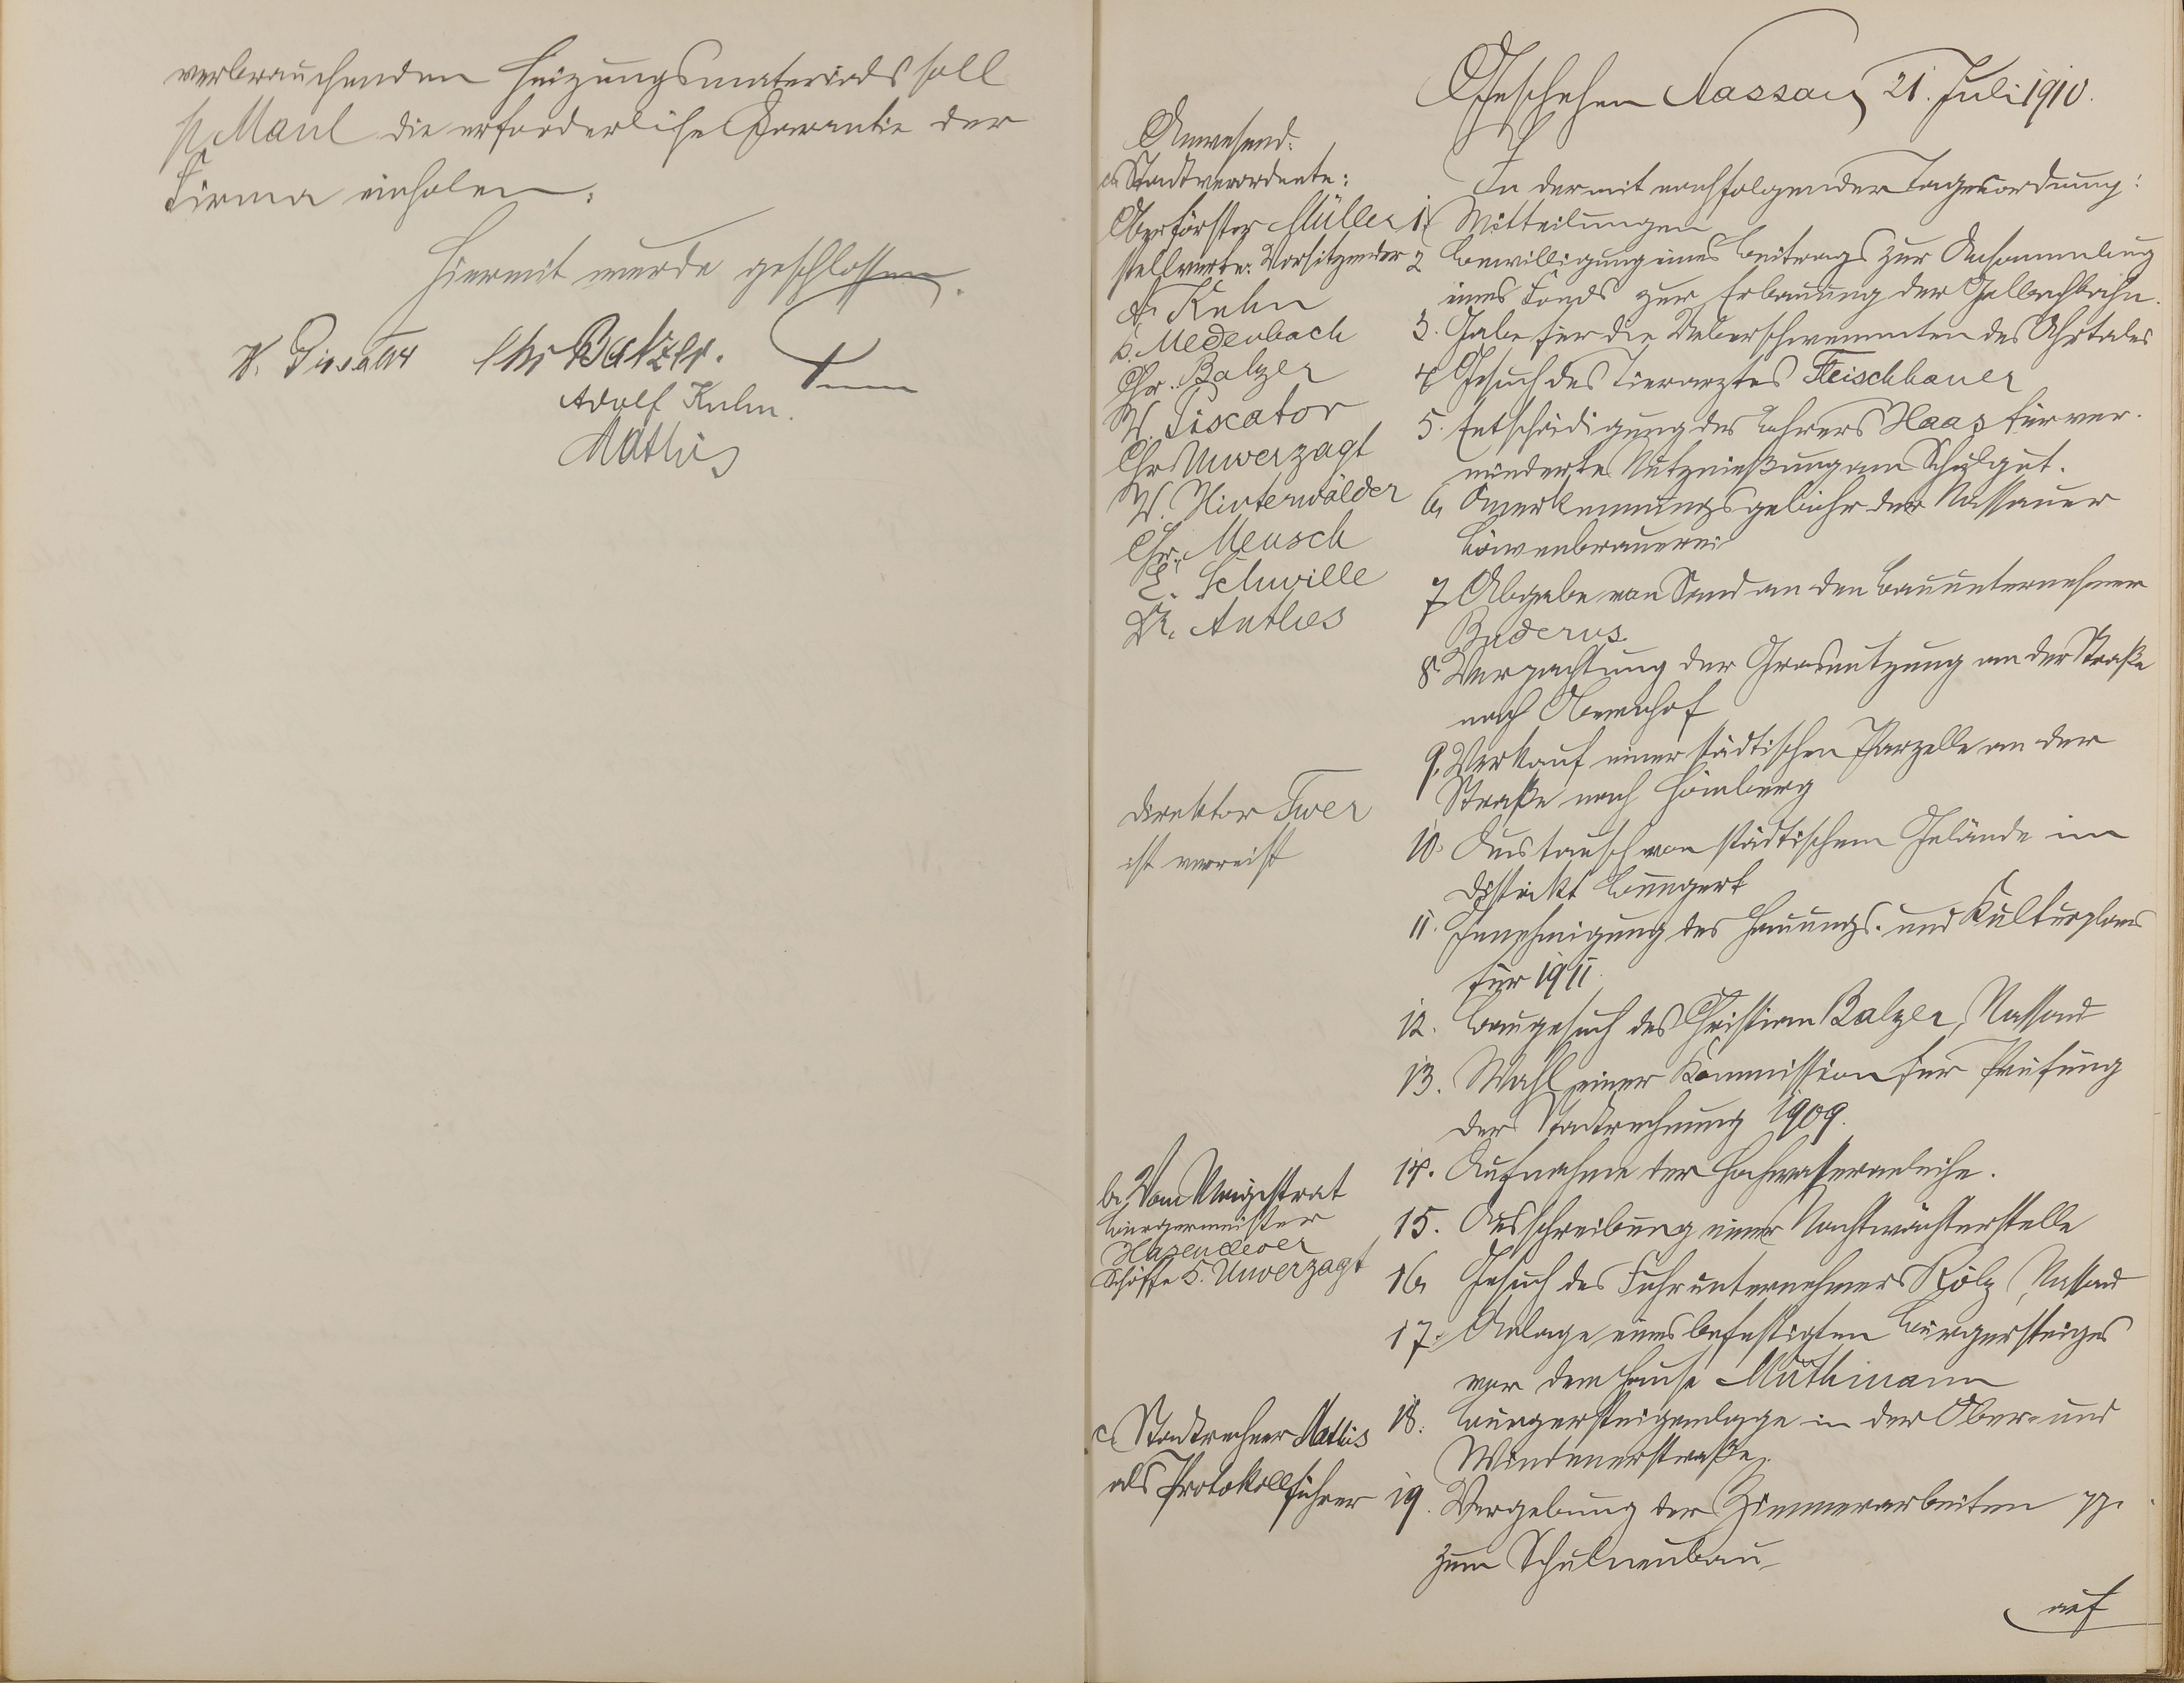 verbrauchenden Heizungsmaterials soll
p Maul die erforderliche Garantie der
Firma einholen.
Hiermit wurde geschlossen.
W. Piscator Chr Balzer.
Adolf Kuhn.
Mathis
Geschehen Nassau, 21. Juli 1910.
Anwesend:
a. Stadtverordnete:
Oberförster Müller
stellvertr. Vorsitzender
A. Kuhn
H. Medenbach
Chr. Balzer
W. Piscator
Chr Unverzagt
W. Hinterwälder
Chr. Meusch
E. Schwille
R. Anthes
Direktor Twer
ist verreist
b. Vom Magistrat
Bürgermeister
Hasenclever
Schöffe H. Unverzagt
c. Stadtrechner Mathis
als Protokollführer
In der mit nachfolgender Tagesordnung:
1. Mitteilungen
2 Bewilligung eines Beitrags zur Ansammlung
eines Fonds zur Erbauung der Gelbachbahn.
3. Gabe für die Ueberschwemmten des Ahrtales
4 Gesuch des Tierarztes Fleischhauer
5. Entschädigung des Lehrers Haas für ver-
minderte Nutznießung am Schulgut.
6. Anerkennungsgebühr der Nassauer
Löwenbrauerei
7 Abgabe von Sand an den Bauunternehmer
Buderus.
8 Verpachtung der Grasnutzung an der Straße
nach Obernhof
9. Verkauf einer städtischen Parzelle an der
Straße nach Hömberg
10. Austausch von städtischem Gelände im
Distrikt Bungert
11. Genehmigung des Hauungs- und Kulturplans
für 1911.
12. Baugesuch des Christian Balzer, Nassau
13. Wahl einer Kommission für Prüfung
der Stadtrechnung 1909.
14. Aufnahme der Hochwasseranleihe.
15. Ausschreibung einer Nachtwächterstelle
16. Gesuch des Fuhrunternehmers Kölz, Nassau
17. Anlage eines befestigten Bürgersteiges
vor dem Hause Muthmann
18. Bürgersteiganlage in der Ober- und
Windenerstraße.
19. Vergebung der Zimmerarbeiten pp.
zum Schulneubau
auf